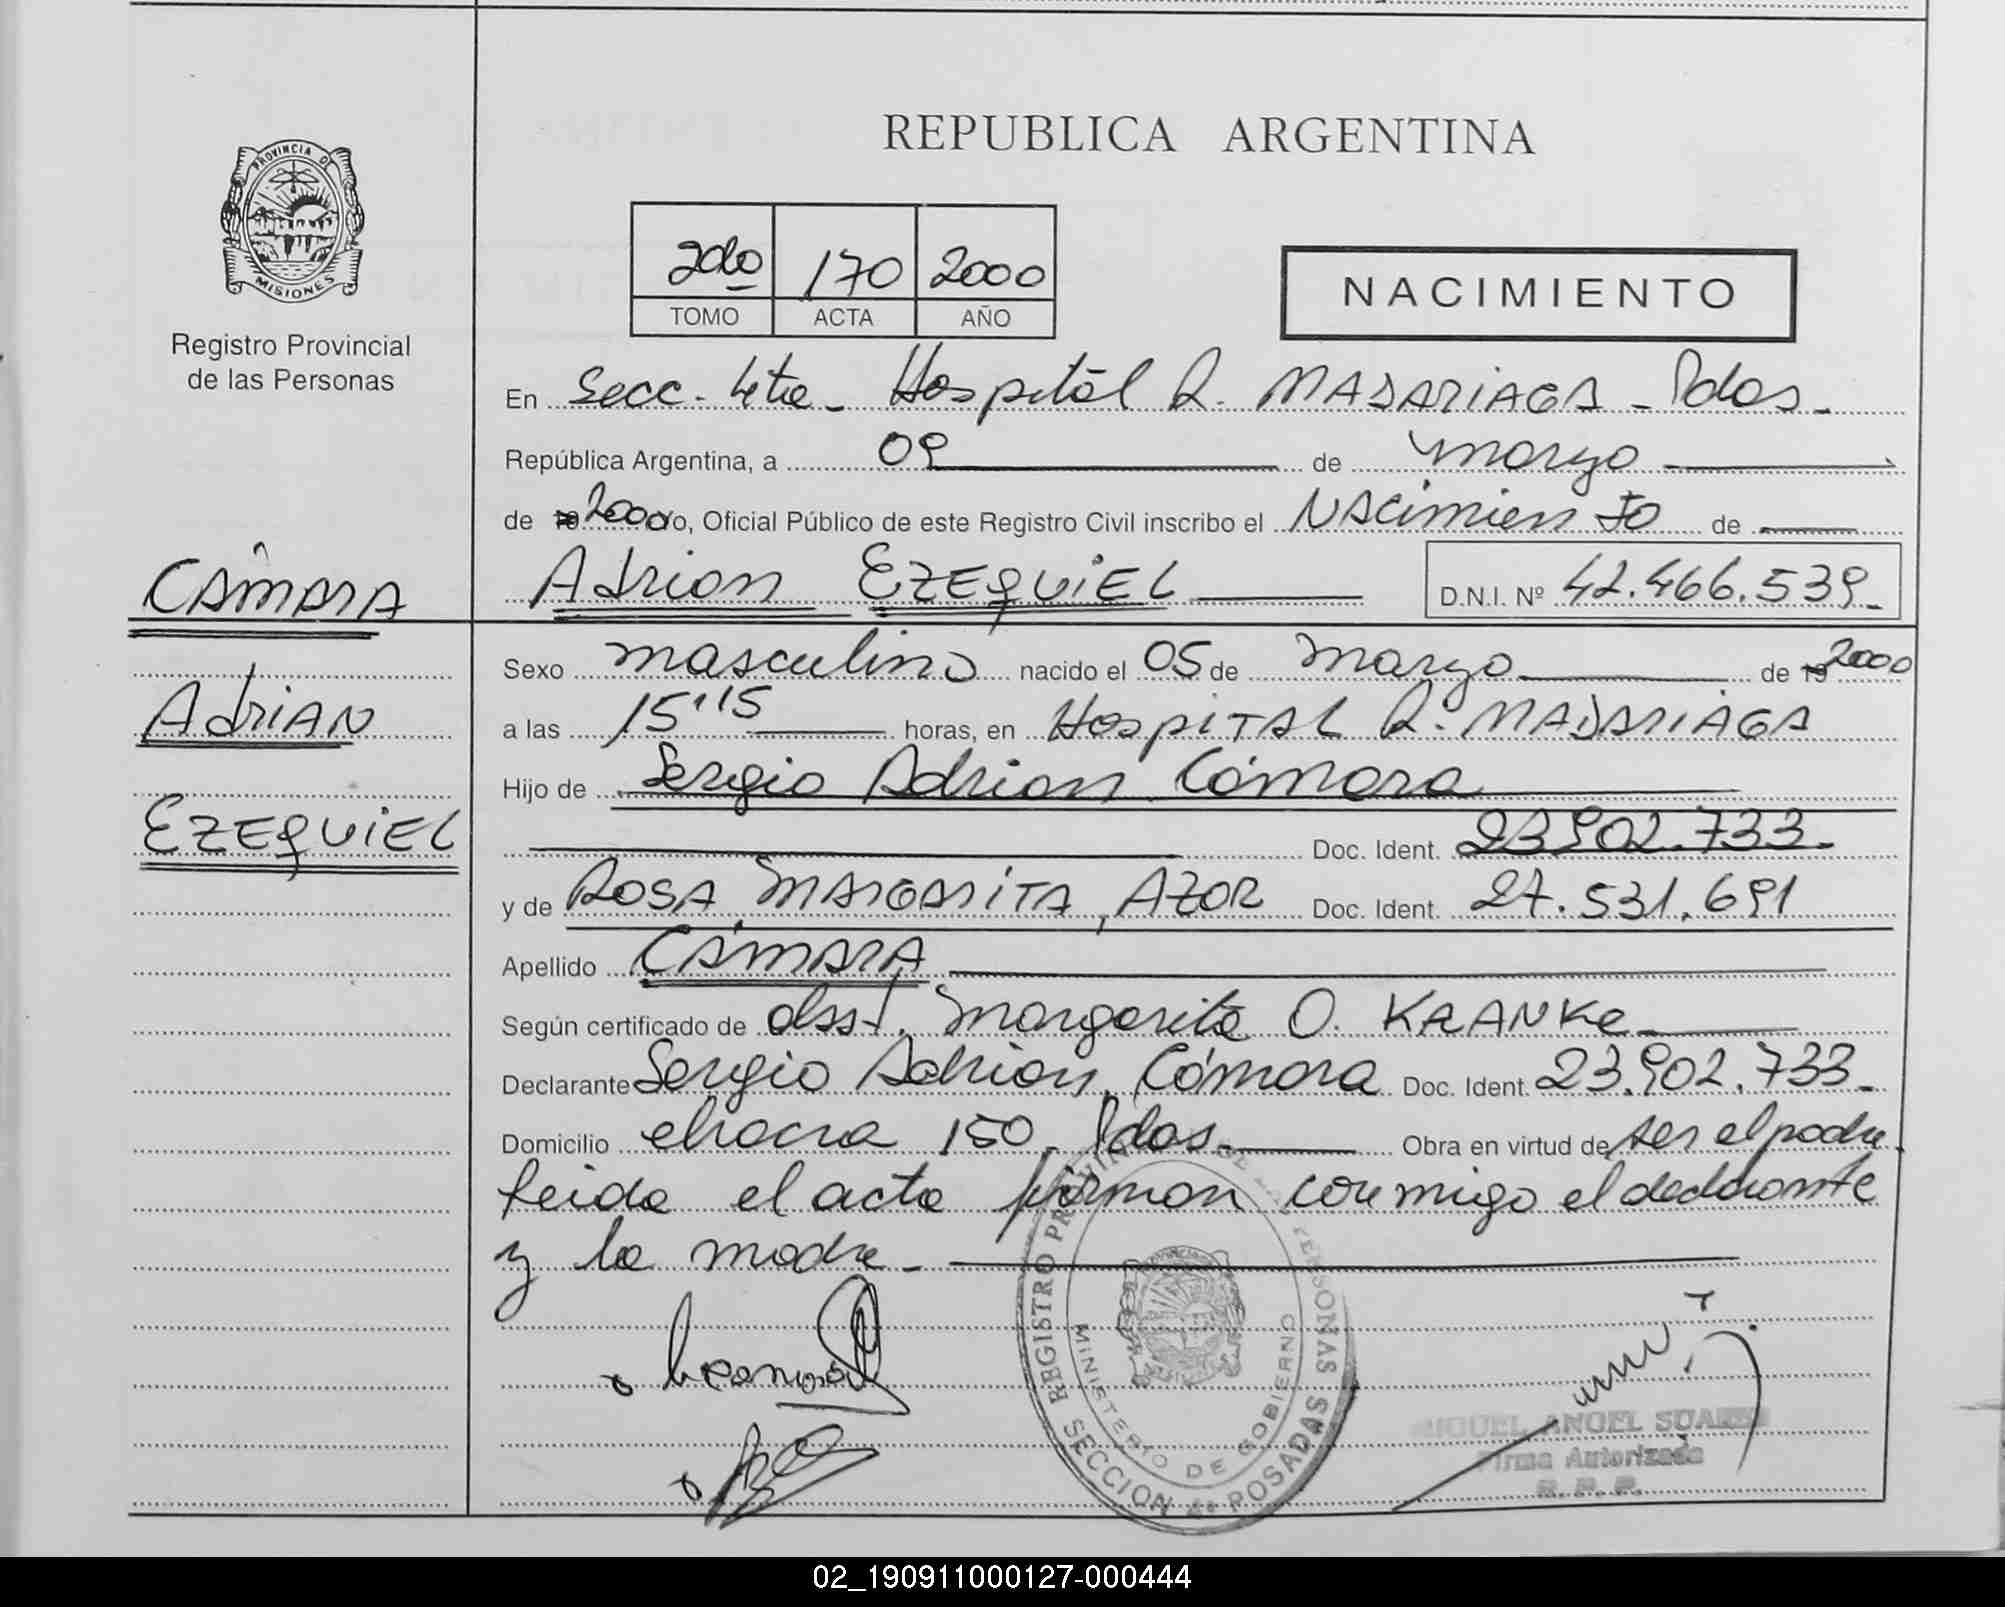 REPUBLICA ARGENTINA
PROVINCIA DE
MISIONES
Registro Provincial
de las Personas
2do 170 2000
TOMO ACTA AÑO
NACIMIENTO
En Secc. 4ta - Hospital R. MADARIAGA - Pdas -
República Argentina, a 09 de marzo
de 19 2000 Yo, Oficial Público de este Registro Civil inscribo el NACimienTO de
Adrian EZEQUIEL D.N.I. Nº 42.466.539.
CÁMARA
AdriAN
EZEQUIEL
Sexo masculino nacido el 05 de marzo de 19 2000
a las 15'15 horas, en HOSPITAL R. MADARIAGA
Hijo de Sergio Adrian Cámara
Doc. Ident. 23902.733.
y de ROSA MARGARITA, AZOR Doc. Ident. 27.531.691
Apellido CÁMARA
Según certificado de obst. Margarita O. KRANKe
Declarante Sergio Adrian, Cámara Doc. Ident. 23.902.733.
Domicilio chacra 150. Pdas. Obra en virtud de ser el padre
leida el acta firman conmigo el declarante
y la madre.
REGISTRO PROVINCIAL DE LAS PERSONAS
MINISTERIO DE GOBIERNO
SECCION 4ª POSADAS
MIGUEL ANGEL SUAREZ
Firma Autorizada
R. P. P.
02_190911000127-000444